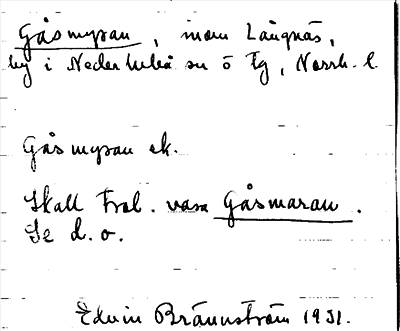 Gåsmyran, inom Långnäs,
by i Nederluleå sn ö fg, Norrb. l.
Gåsmyran ek.
Skall trol. vara Gåsmaran.
Se d. o.
Edvin Brännström 1931.